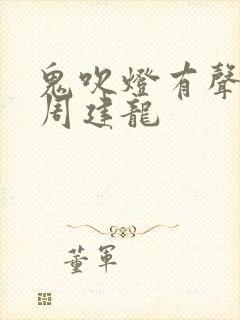 鬼吹燈有聲
周建龍
董軍